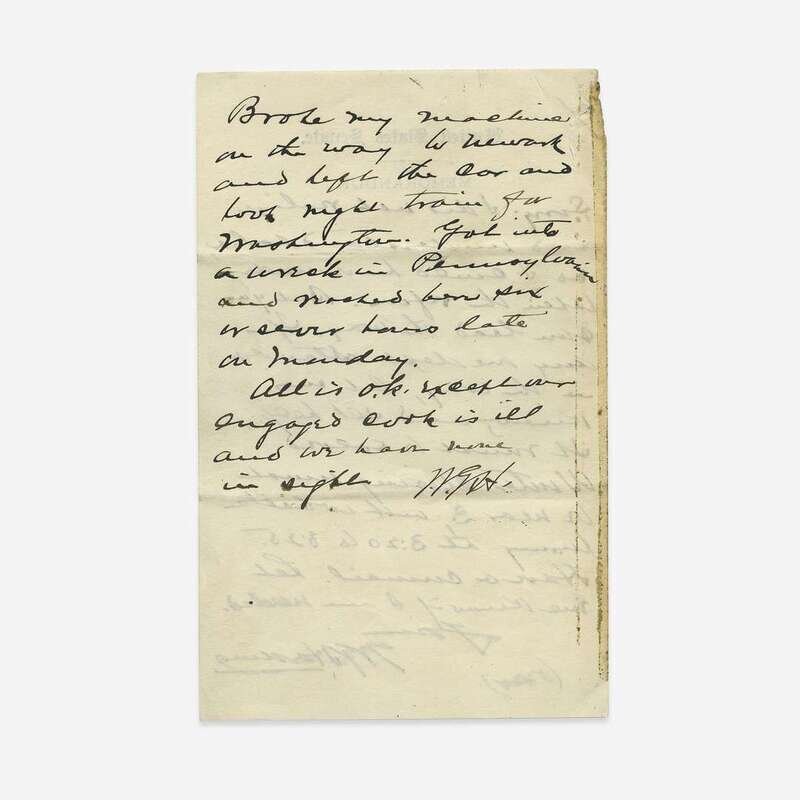 Broke my machine
on the way to Newark
and left the car and
took night train for
Washington. Got into
a wreck in Pennsylvania
and reached here six
or seven hours late
on Monday.
All is o.k. except our
engaged cook is ill
and we have none
in sight. W.G.H.